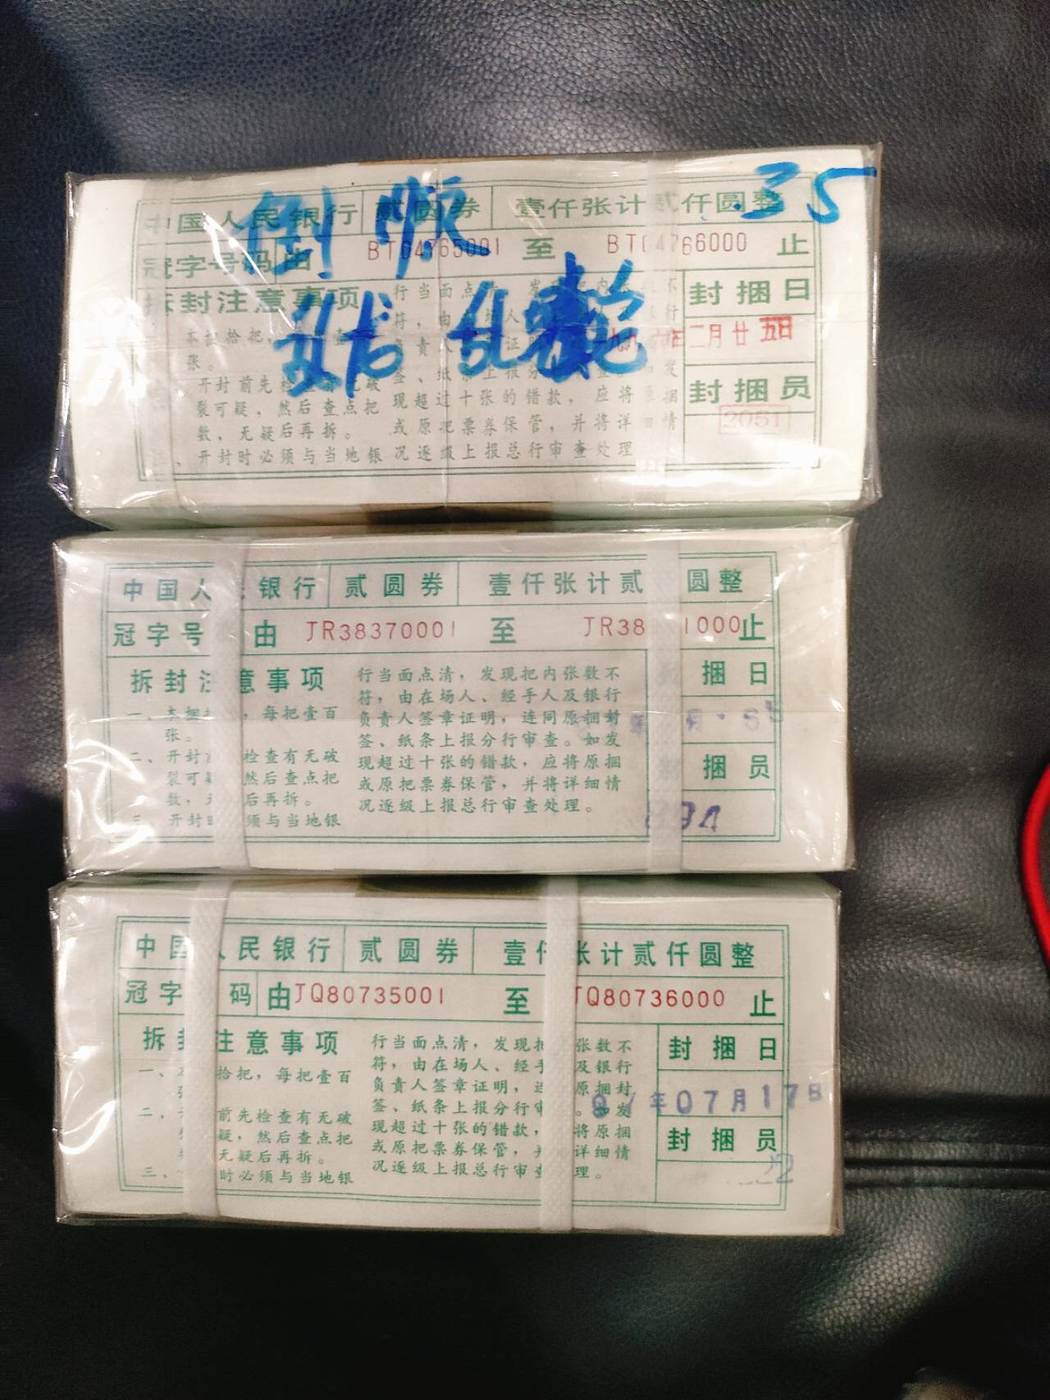 35
倒 顺
中国人民银行 贰圆券 壹仟张计贰仟圆整
冠字号码由 BT04765001 至 BT04766000 止
拆封注意事项
封捆日
二月廿五日
封捆员
2051
张。
开封前先检
裂可疑，然后查点把
数，无疑后再拆。
开封时必须与当地银
行当面点
现超过十张的错款，应将原捆
或原把票券保管，并将详细情
况逐级上报总行审查处理
中国人 银行 贰圆券 壹仟张计贰 圆整
冠字号 由 JR38370001 至 JR38 1000 止
拆封注意事项
一、本捆 ，每把壹百
张。
二、开封 检查有无破
裂可 然后查点把
数， 后再拆。
三、开封 须与当地银
行当面点清，发现把内张数不
符，由在场人、经手人及银行
负责人签章证明，连同原捆封
签、纸条上报分行审查。如发
现超过十张的错款，应将原捆
或原把票券保管，并将详细情
况逐级上报总行审查处理。
捆日
捆员
中国 人民银行 贰圆券 壹仟张计贰仟圆整
冠字 码由 JQ80735001 至 JQ80736000 止
拆封注意事项
一、 拾把，每把壹百
二、 前先检查有无破
疑，然后查点把
无疑后再拆。
三、 时必须与当地银
行当面点清，发现把 张数不
符，由在场人、经手 及银行
负责人签章证明，连 原捆封
签、纸条上报分行审 。如发
现超过十张的错款， 将原捆
或原把票券保管，并 详细情
况逐级上报总行审查 理。
封捆日
年07月17日
封捆员